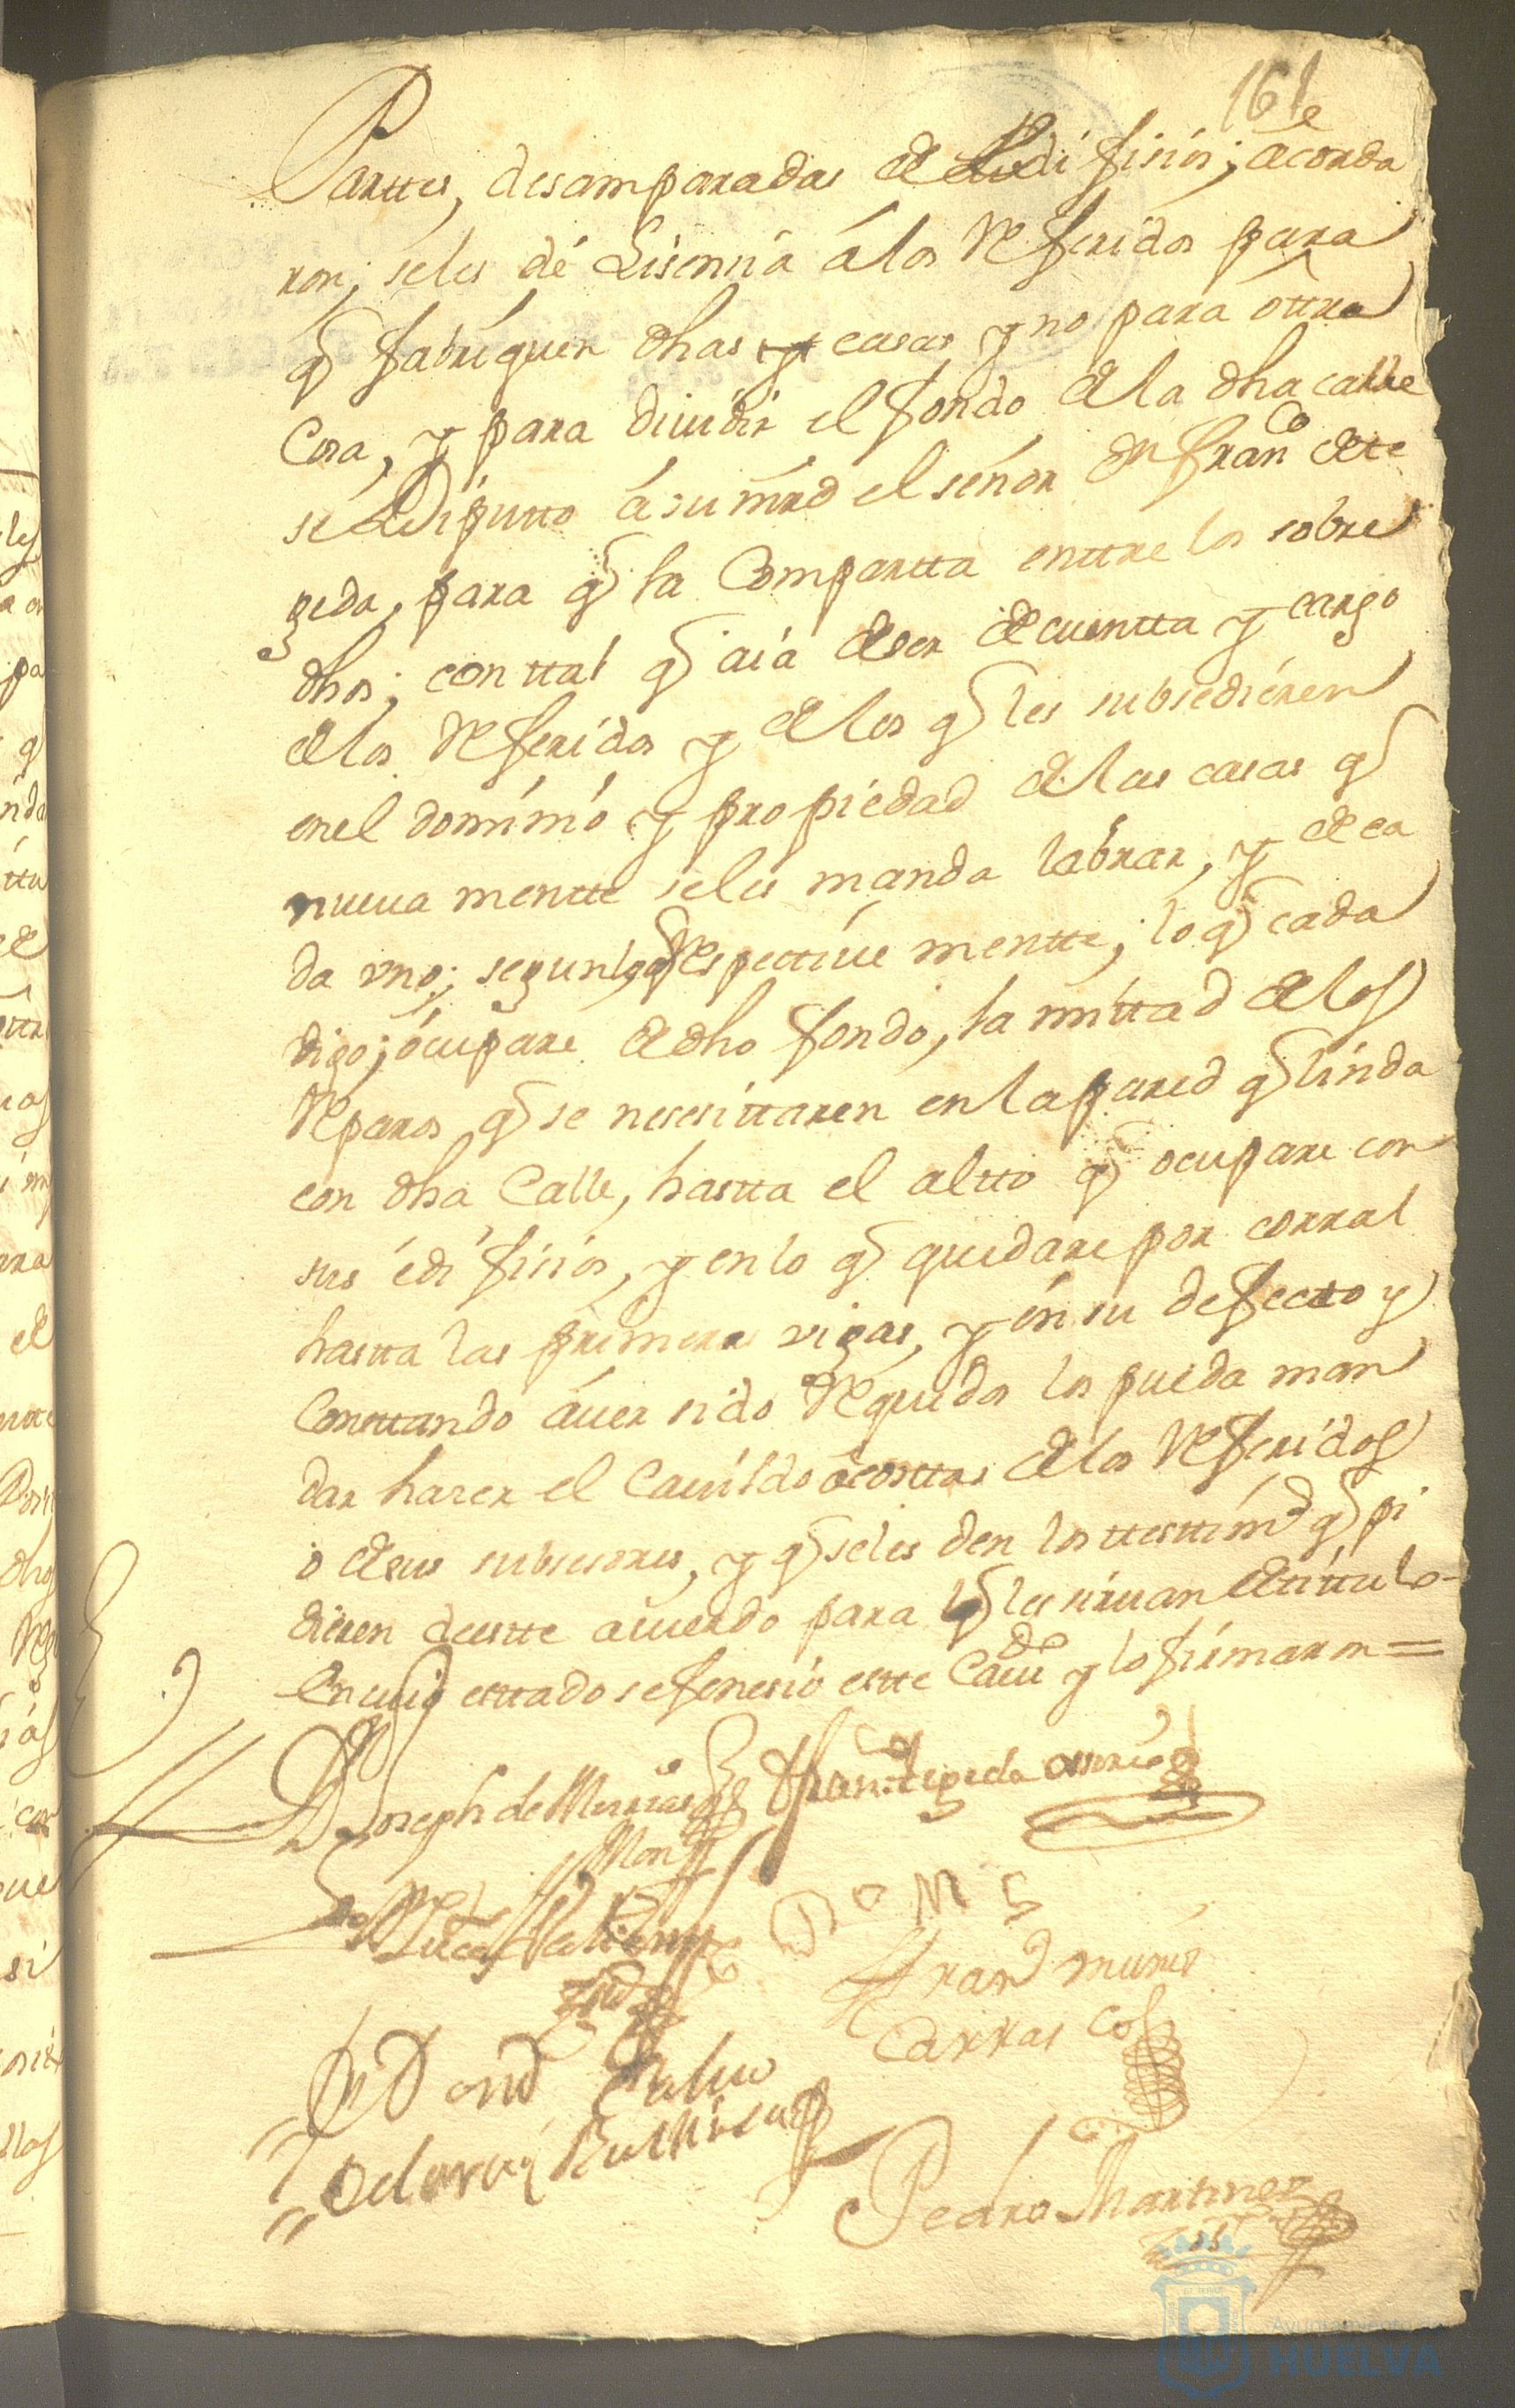 161
Parttes, desamparadas de edifisios; acorda
ron, seles dé Lisensia a los Referidos para
q fabriquen dhas casas y no para ottra
Cosa, y para diuidir el fondo de la dha calle
se Diputto a su mrd el señor Dn Franco de te
zeda, para q la Compartta enttre los sobre
dhos; con ttal q aia de ser de cuentta y cargo
de los Referidos y de los q les subsedieren
en el dominio y propiedad de las casas q
nueua mentte seles manda labrar, y de ca
da vno; segun lo q Respecttiue mentte; lo q cada
digo; ocupare de dho fondo, la mittad de los
Reparos q se nesesittaren en la pared q linda
con dha Calle, hastta el altto q ocupare con
sus edifisios, y en lo q quedare por corral
hastta las primeras vigas, y en su defectto y
Consttando auer sido Requeridos los pueda man
dar hazer el Cauildo a costtas de los Referidos
o de sus subsesores, y q seles den los testtimos q pi
dieren de estte acuerdo para q les siruan de tittulo
En cuio esttado se fenesio estte Caudo y lo firmaron =
Dn Joseph de
Franco tezeda osorio
Domgo
Franco munis
Carrasco
Pedro Martinez
Ayuntamiento de
HUELVA